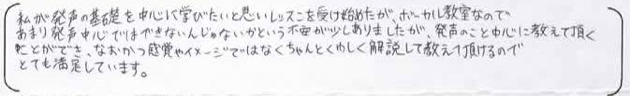 私が発声の基礎を中心に学びたいと思いレッスンを受け始めたが、ボーカル教室なので
あまり発声中心ではできないんじゃないかという不安が少しありましたが、発声のこと中心に教えて頂く
ことができ、なおかつ感覚やイメージではなくちゃんとくわしく解説して教えて頂けるので
とても満足しています。